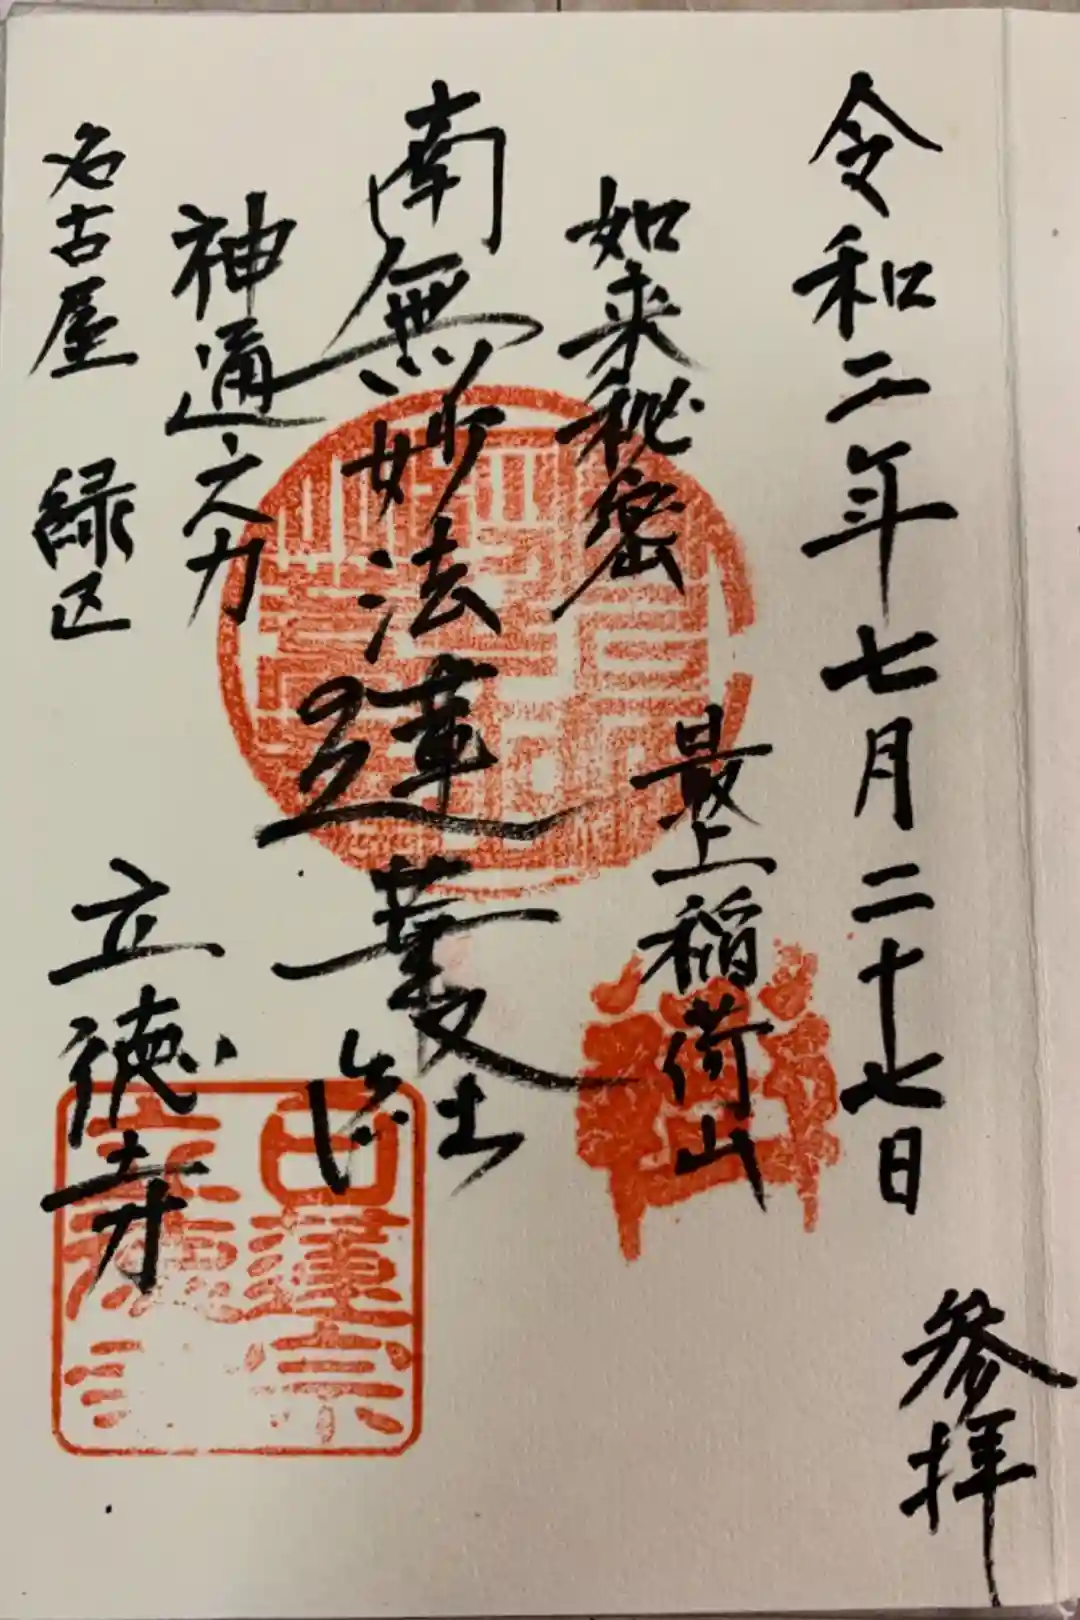 令和二年七月二十七日
参拝
如来秘密
最上稲荷山
南無妙法蓮華経
神通之力
名古屋 緑区
立徳寺
日蓮宗
立徳寺